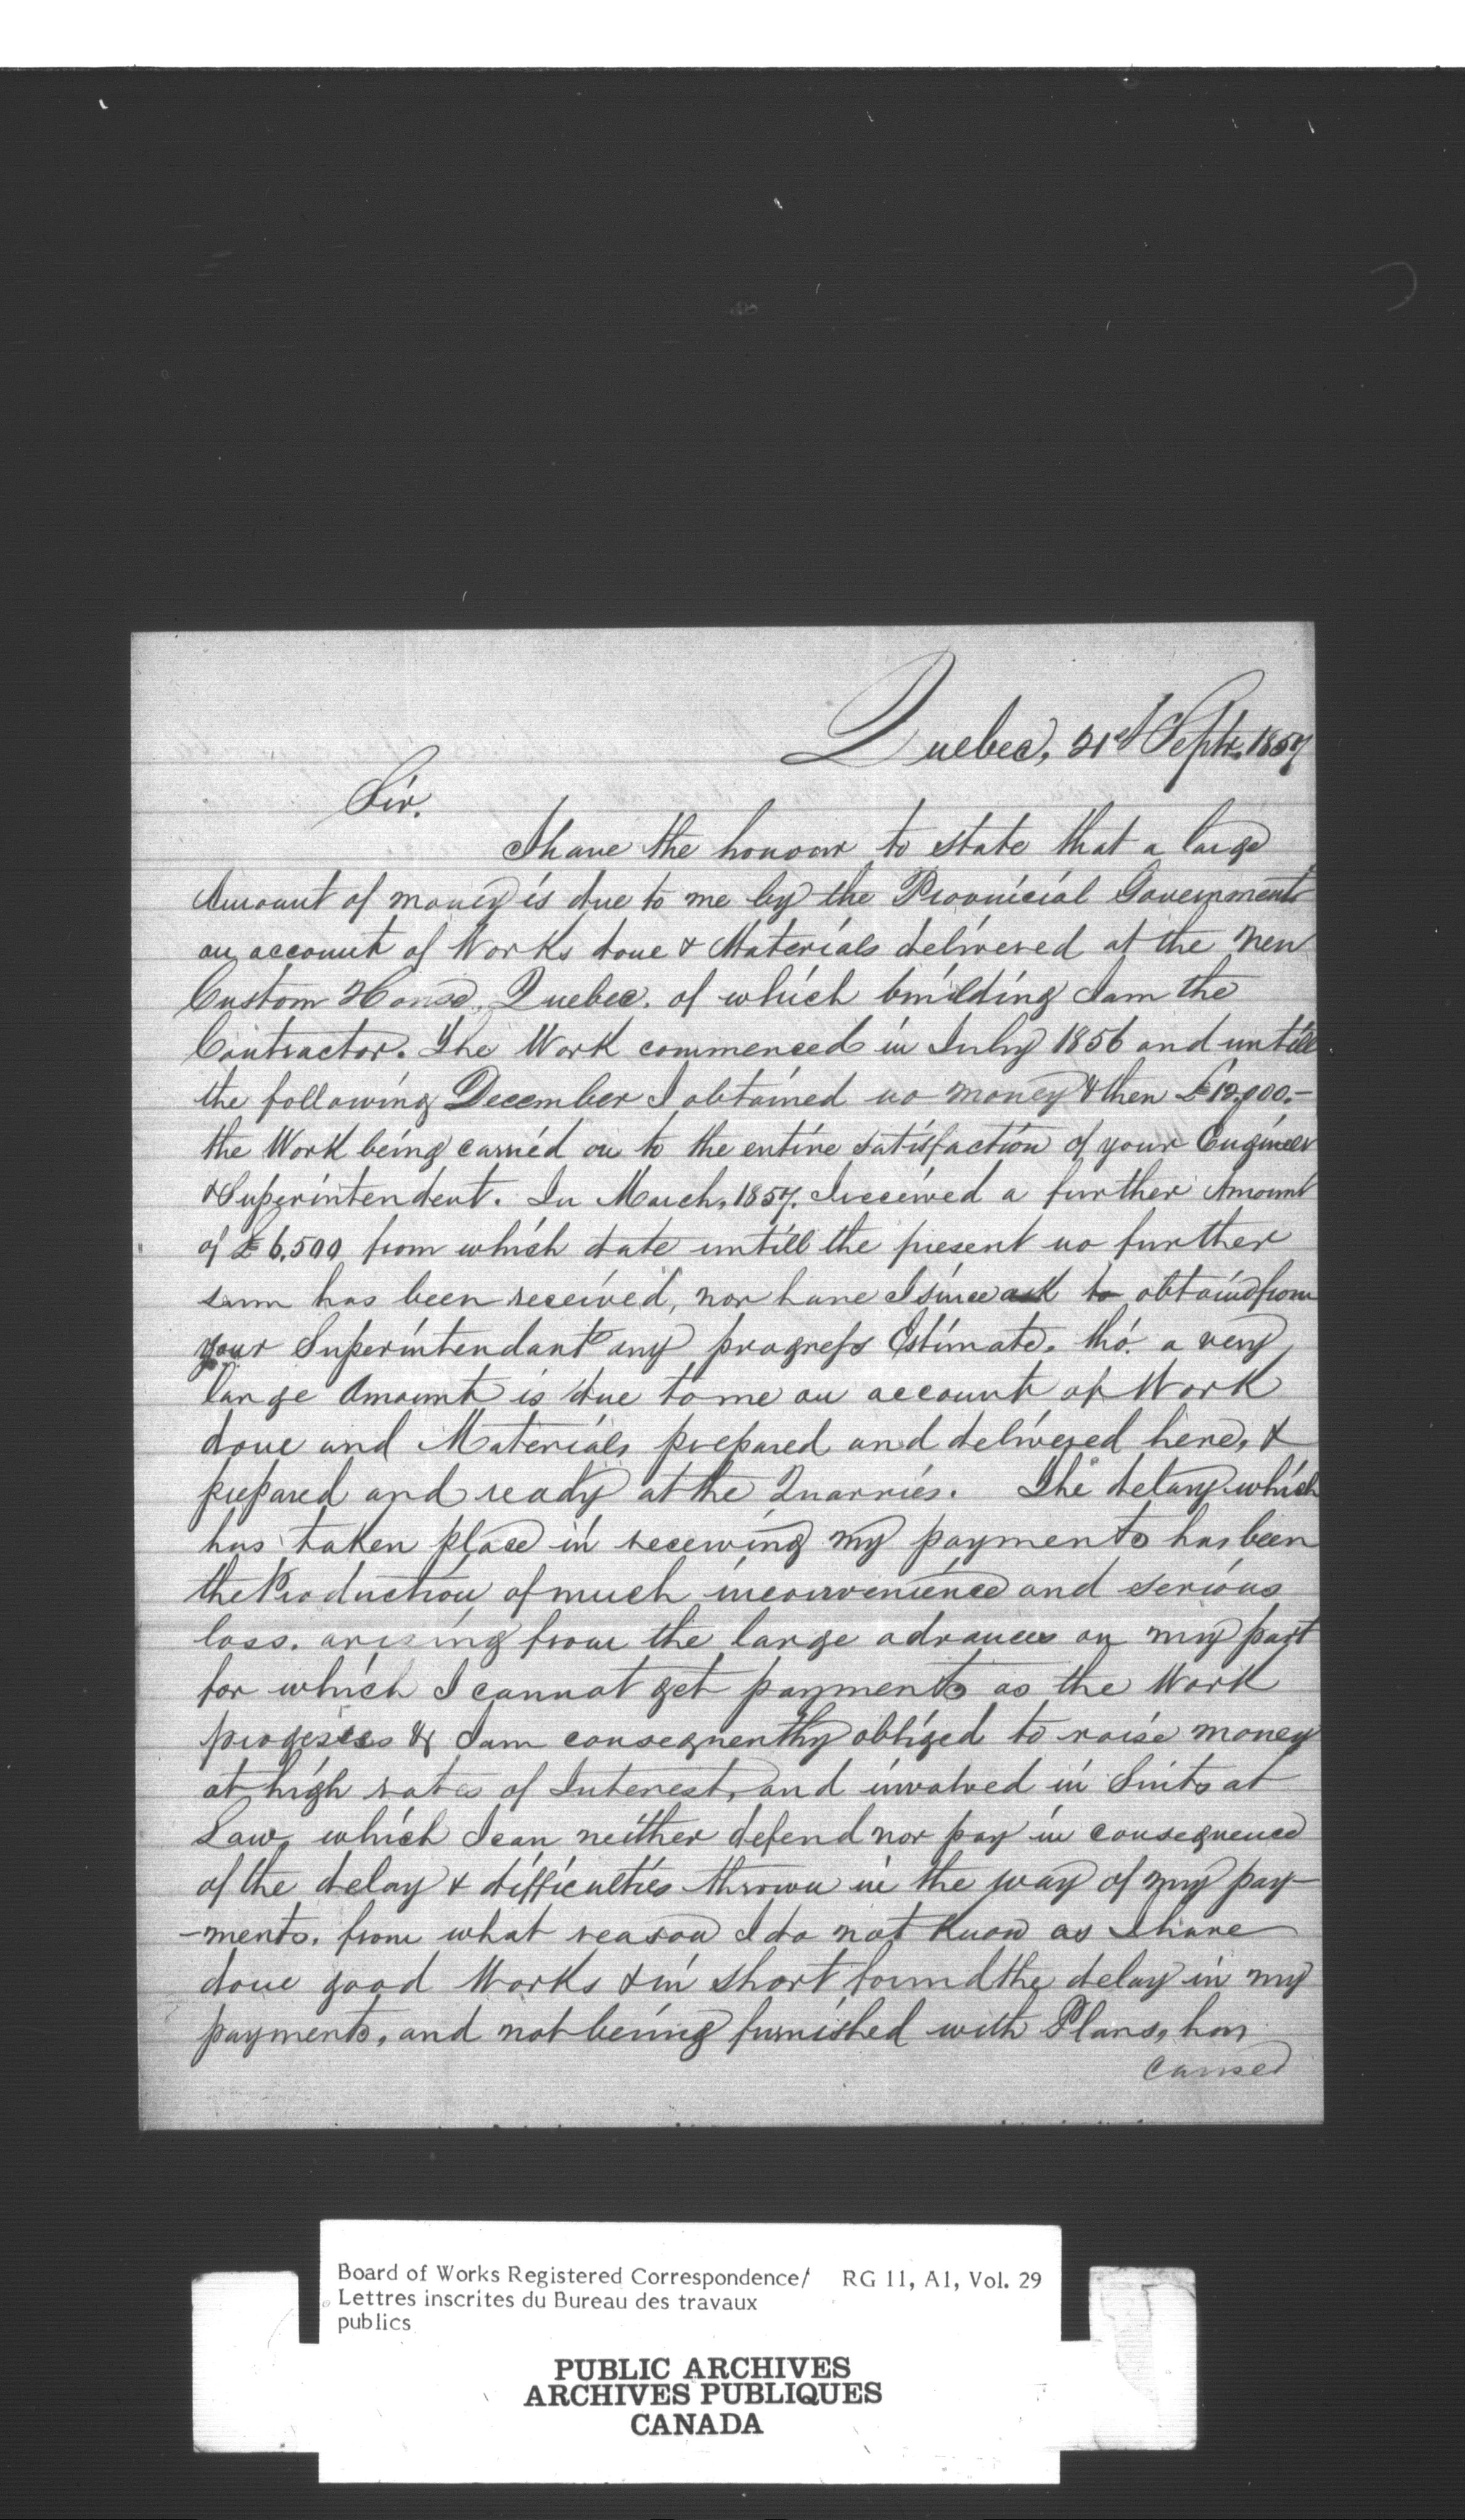 Quebec, 21st Septr. 1857
Sir.
I have the honour to state that a large
Amount of money is due to me by the Provincial Government
on account of Works done & Materials delivered at the New
Custom House, Quebec. of which building I am the
Contractor. The Work commenced in July 1856 and untill
the following December I obtained no money & then £12,000.-
the Work being carried on to the entire satisfaction of your Engineer
& Superintendent. In March, 1857. I received a further Amount
of £6,500 from which date untill the present no further
sum has been received, nor have I since to obtain from
your Superintendant any progress Estimate. tho' a very
large Amount is due to me on account of Work
done and Materials prepared and delivered here, &
prepared and ready at the Quarries. The delay which
has taken place in receiving my payments has been
the Production of much inconvenience and serious
loss. arising from the large advances on my part
for which I cannot get payments as the Work
progesses & I am consequently obliged to raise money
at high rates of Interest, and involved in Suits at
Law, which I can neither defend nor pay in consequence
of the delay & difficulties thrown in the way of my pay-
-ments. from what reason I do not know as I have
done good Works & in short found the delay in my
payments, and not being furnished with Plans, has
caused
Board of Works Registered Correspondence/ RG 11, A1, Vol. 29
Lettres inscrites du Bureau des travaux
publics
PUBLIC ARCHIVES
ARCHIVES PUBLIQUES
CANADA